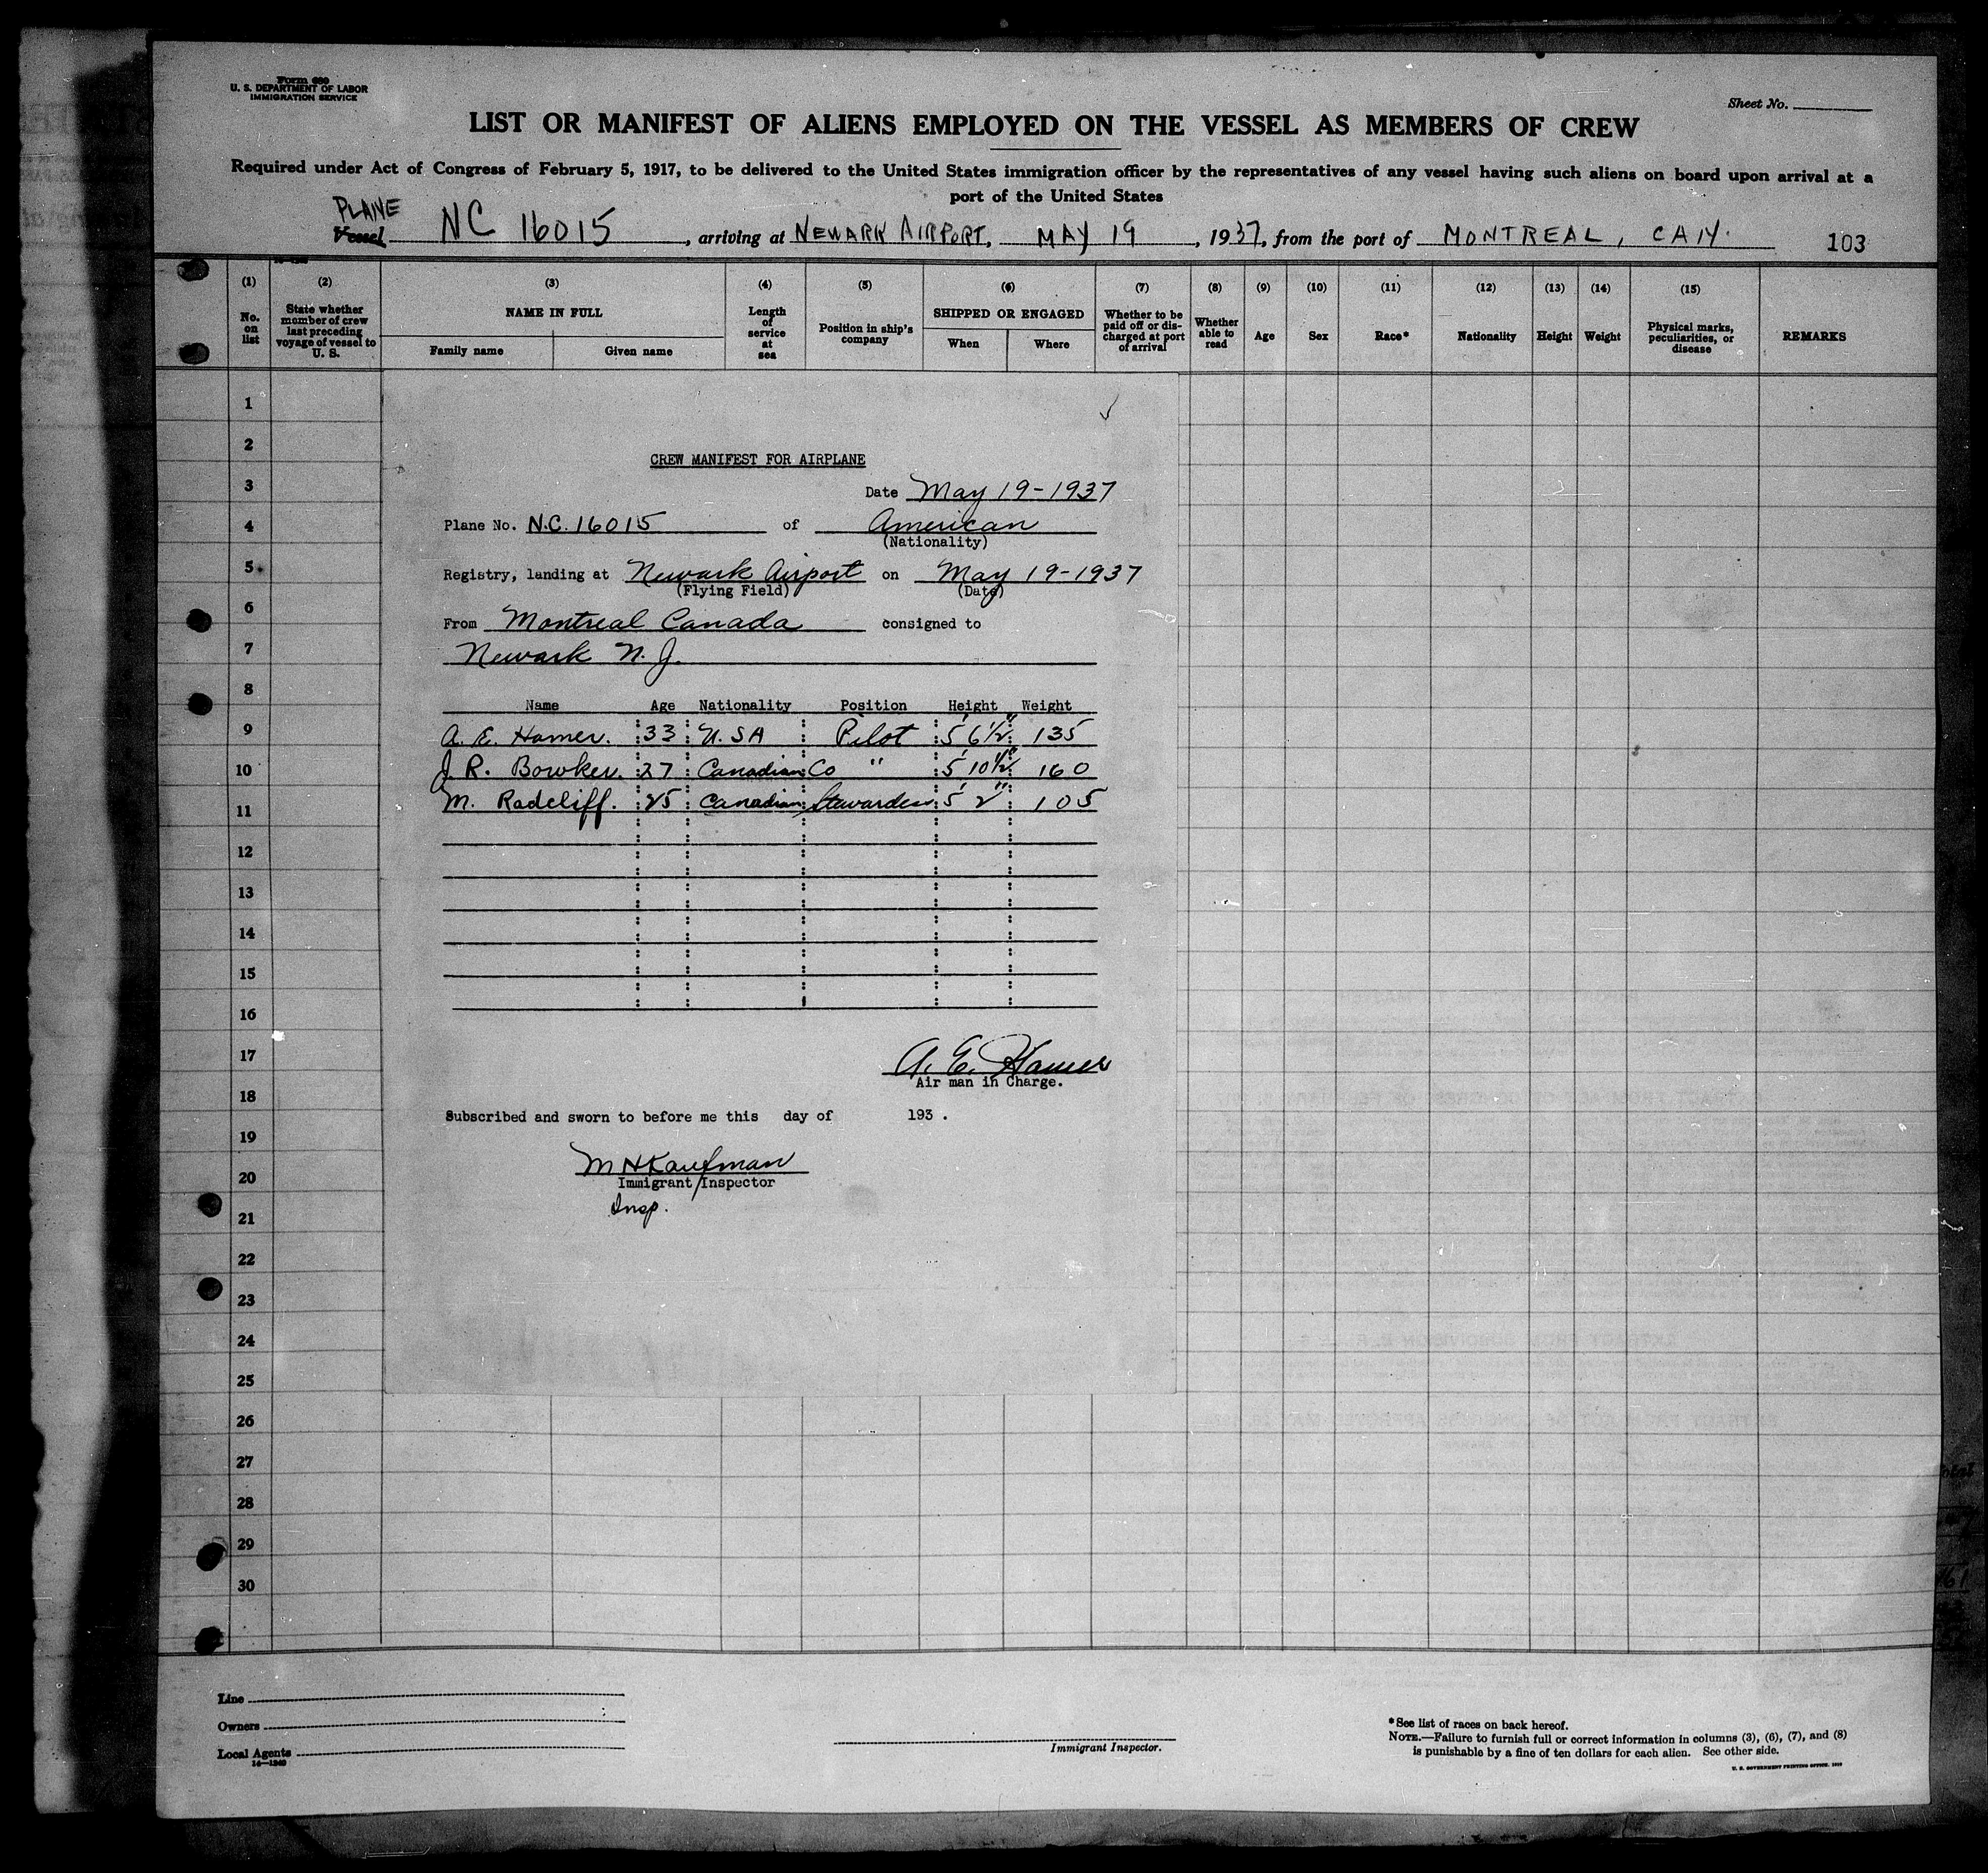 Form 680
U. S. DEPARTMENT OF LABOR
IMMIGRATION SERVICE
Sheet No.
LIST OR MANIFEST OF ALIENS EMPLOYED ON THE VESSEL AS MEMBERS OF CREW
Required under Act of Congress of February 5, 1917, to be delivered to the United States immigration officer by the representatives of any vessel having such aliens on board upon arrival at a
port of the United States
PLANE
Vessel NC 16015, arriving at NEWARK AIRPORT, MAY 19, 1937, from the port of MONTREAL, CAN. 103
(1) (2) (3) (4) (5) (6) (7) (8) (9) (10) (11) (12) (13) (14) (15)
No. on list
State whether member of crew last preceding voyage of vessel to U. S.
NAME IN FULL
Family name
Given name
Length of service at sea
Position in ship's company
SHIPPED OR ENGAGED
When
Where
Whether to be paid off or discharged at port of arrival
Whether able to read
Age
Sex
Race*
Nationality
Height
Weight
Physical marks, peculiarities, or disease
REMARKS
1
2
3
4
5
6
7
8
9
10
11
12
13
14
15
16
17
18
19
20
21
22
23
24
25
26
27
28
29
30
CREW MANIFEST FOR AIRPLANE
Date May 19-1937
Plane No. N.C. 16015 of American
(Nationality)
Registry, landing at Newark Airport on May 19-1937
(Flying Field) (Date)
From Montreal Canada consigned to
Newark N. J.
Name Age Nationality Position Height Weight
A. E. Hamer. 33 U. S A Pilot 5' 6 1/2" 135
J. R. Bowker. 27 Canadian Co " 5' 10 1/2" 160
M. Radcliff. 25 Canadian Stewardess 5' 2" 105
A. E. Hamer
Air man in Charge.
Subscribed and sworn to before me this day of 193 .
M H Kaufman
Immigrant Inspector
Insp.
Line
Owners
Local Agents
14—1240
Immigrant Inspector.
*See list of races on back hereof.
NOTE.—Failure to furnish full or correct information in columns (3), (6), (7), and (8)
is punishable by a fine of ten dollars for each alien. See other side.